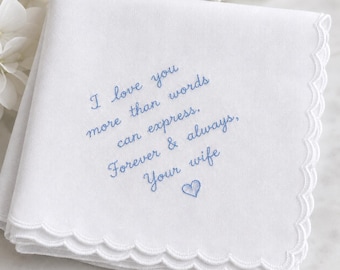 I love you
more than words
can express.
Forever & always,
Your wife